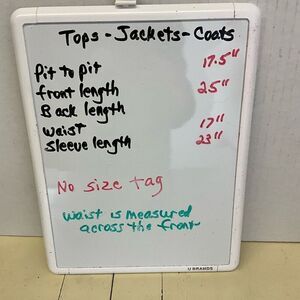 Tops - Jackets - Coats
Pit to pit 17.5"
front length 25"
Back length
waist 17"
Sleeve length 23"
No size tag
waist is measured
across the front
U BRANDS